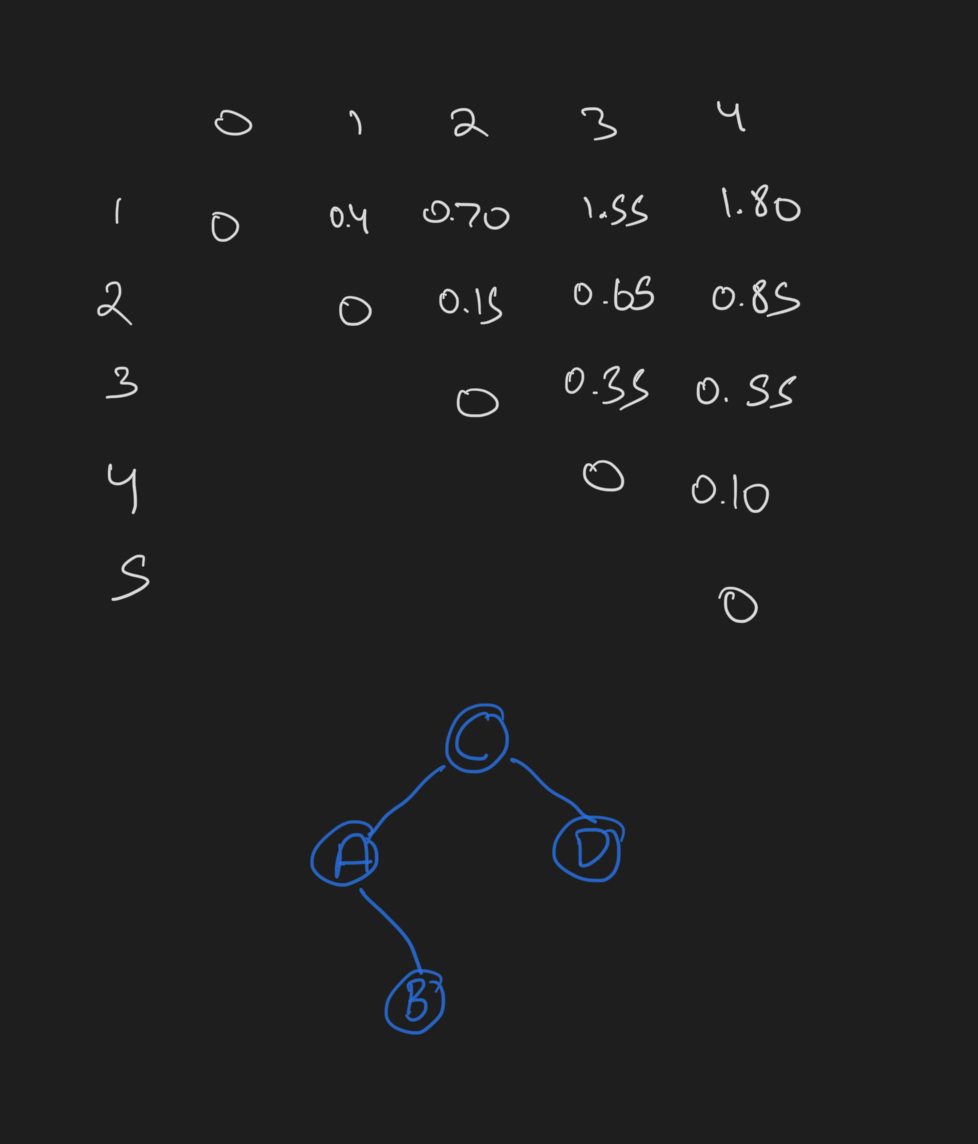 0 1 2 3 4
1 0 0.4 0.70 1.55 1.80
2 0 0.15 0.65 0.85
3 0 0.35 0.55
4 0 0.10
5 0
C
A D
B